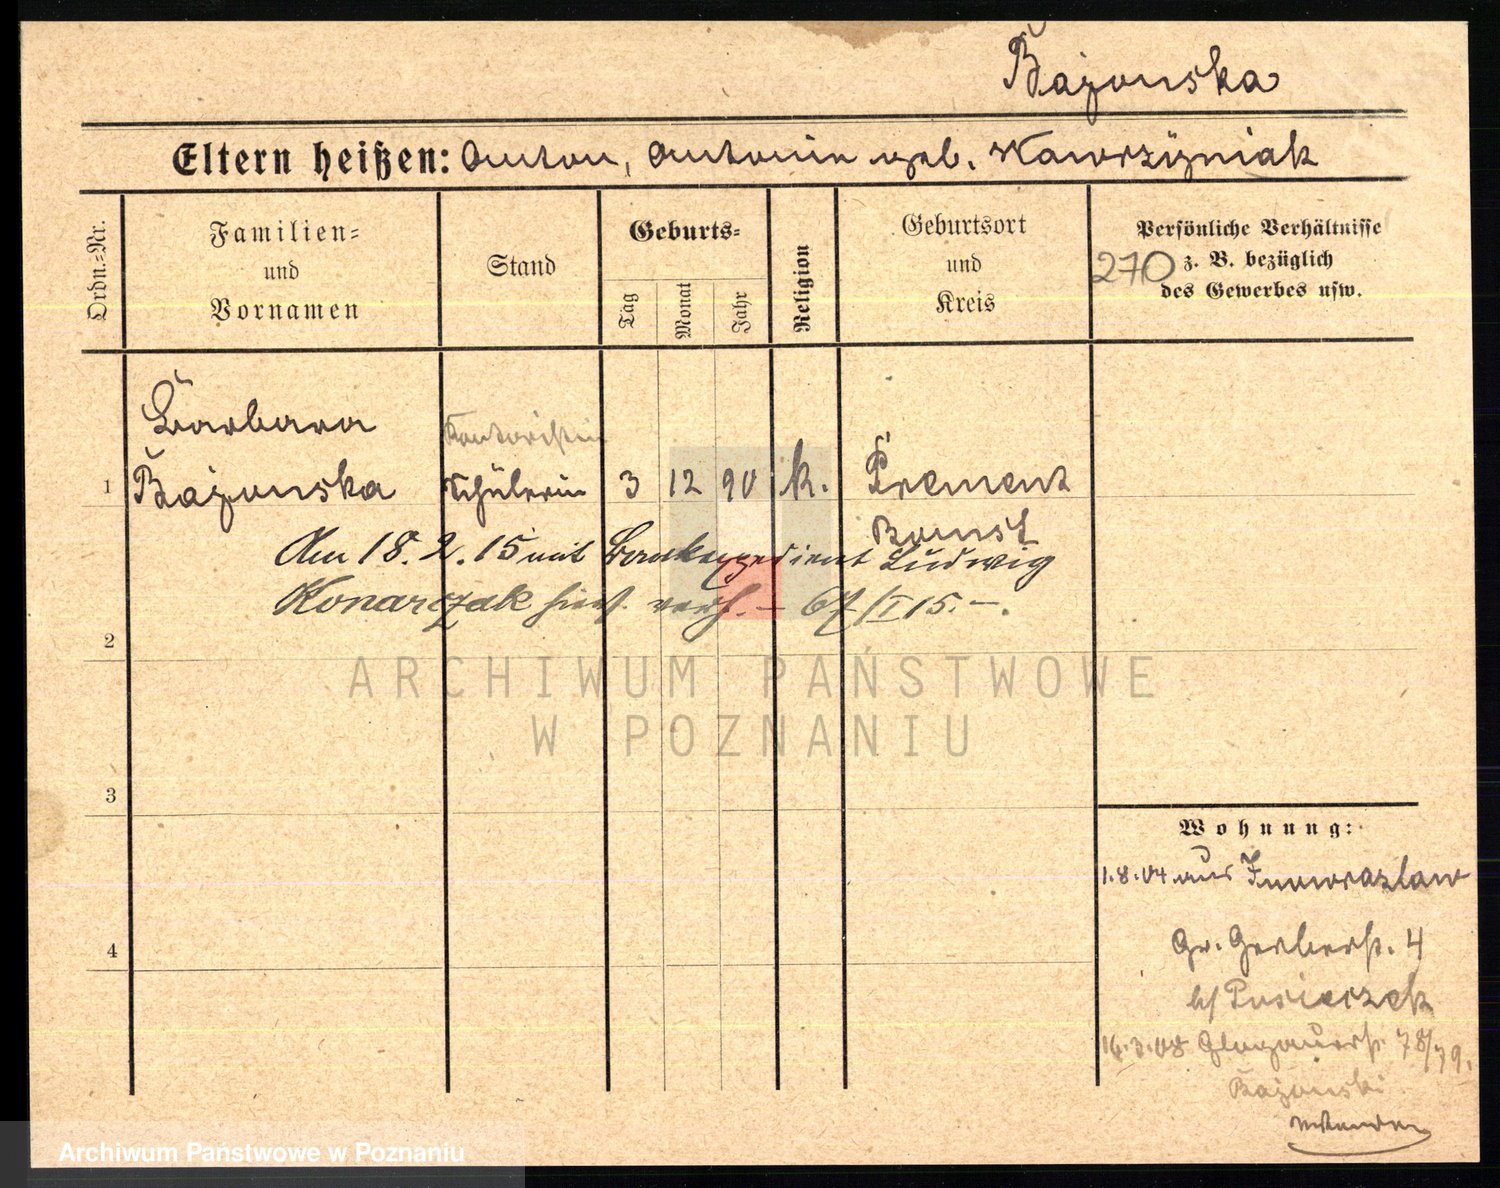 Bajonska
Eltern heißen: Anton, Antonin geb. Wawrzÿniak
Ordn.-Nr.
Familien- und Vornamen
Stand
Geburts-
Tag
Monat
Jahr
Religion
Geburtsort und Kreis
Persönliche Verhältnisse
270 z. B. bezüglich
des Gewerbes usw.
Barbara
Kontoristin
1 Bajonska Schülerin 3 12 90 k. Priment
Bomst
Am 18. 2. 15 mit Bankexpedient Ludwig
Konarczak hierf. verh. – 67/I 15. –.
2
ARCHIWUM PAŃSTWOWE
W POZNANIU
3
Wohnung:
1.8.04 aus Inowrazlaw
4
Gr. Gerberst. 4
b/
16.3.08 Glogauerst. 78/79.
Bajonski
Archiwum Państwowe w Poznaniu